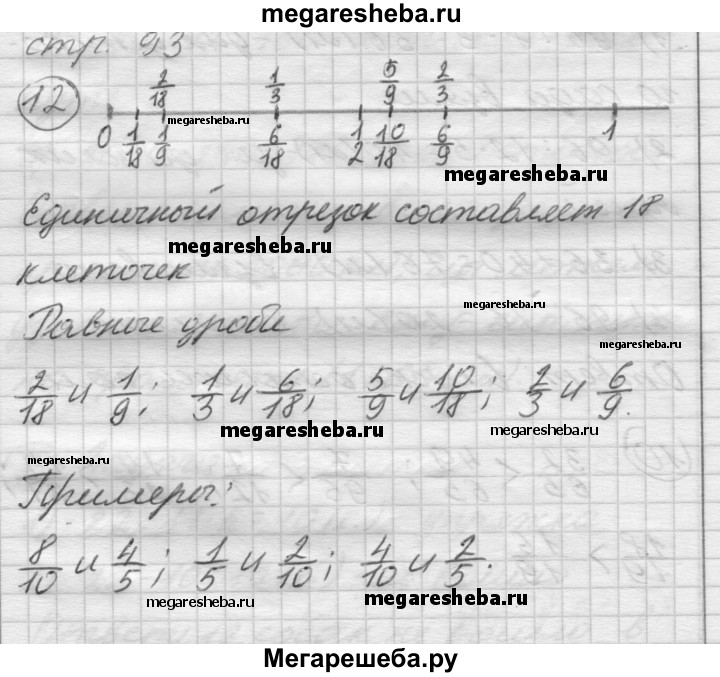 megaresheba.ru
стр. 93
12
2/18 1/3 5/9 2/3
megaresheba.ru
0 1/18 1/9 6/18 1/2 10/18 6/9 1
megaresheba.ru
Единичный отрезок составляет 18
megaresheba.ru
клеточек
megaresheba.ru
Равные дроби
megaresheba.ru
2/18 и 1/9; 1/3 и 6/18; 5/9 и 10/18; 2/3 и 6/9.
megaresheba.ru
megaresheba.ru
megaresheba.ru
Примеры:
8/10 и 4/5; 1/5 и 2/10; 4/10 и 2/5.
megaresheba.ru
megaresheba.ru
Мегарешеба.ру